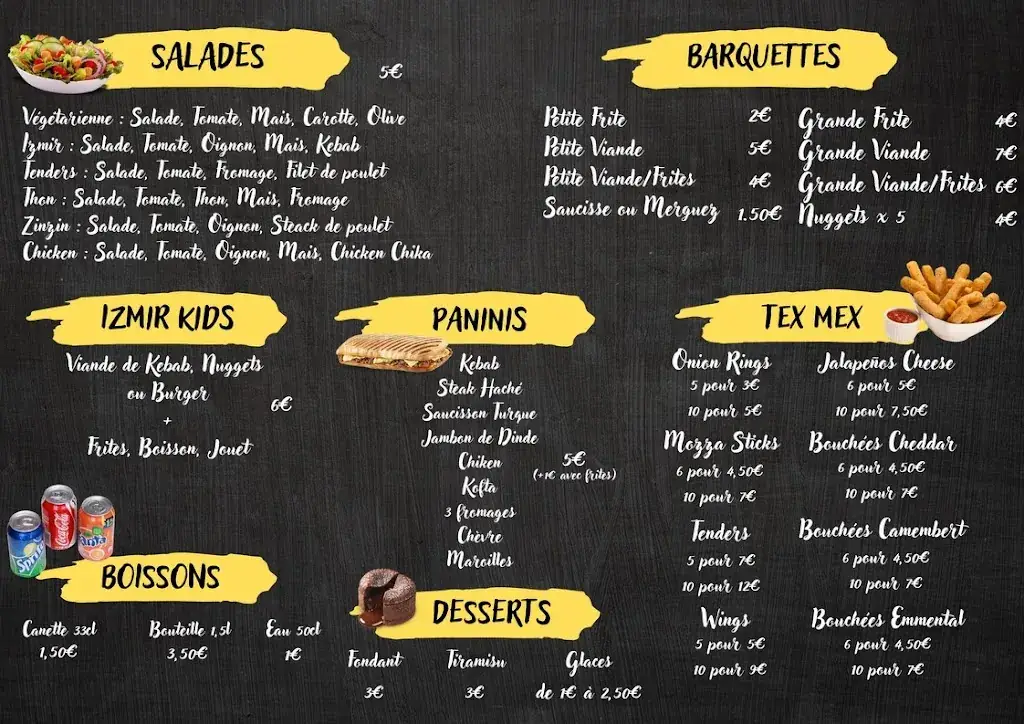 SALADES
5€
Végétarienne : Salade, Tomate, Mais, Carotte, Olive
Izmir : Salade, Tomate, Oignon, Mais, Kebab
Tenders : Salade, Tomate, Fromage, Filet de poulet
Thon : Salade, Tomate, Thon, Mais, Fromage
Zinzin : Salade, Tomate, Oignon, Steack de poulet
Chicken : Salade, Tomate, Oignon, Mais, Chicken Chika
BARQUETTES
Petite Frite 2€
Petite Viande 5€
Petite Viande/Frites 4€
Saucisse ou Merguez 1.50€
Grande Frite 4€
Grande Viande 7€
Grande Viande/Frites 6€
Nuggets x 5 4€
IZMIR KIDS
Viande de Kebab, Nuggets
ou Burger
+
Frites, Boisson, Jouet
6€
PANINIS
Kebab
Steak Haché
Saucisson Turque
Jambon de Dinde
Chiken
Kofta
3 fromages
Chèvre
Maroilles
5€
(+1€ avec frites)
TEX MEX
Onion Rings
5 pour 3€
10 pour 5€
Mozza Sticks
6 pour 4,50€
10 pour 7€
Tenders
5 pour 7€
10 pour 12€
Wings
5 pour 5€
10 pour 9€
Jalapeños Cheese
6 pour 5€
10 pour 7,50€
Bouchées Cheddar
6 pour 4,50€
10 pour 7€
Bouchées Camembert
6 pour 4,50€
10 pour 7€
Bouchées Emmental
6 pour 4,50€
10 pour 7€
Sprite
Coca-Cola
Fanta
BOISSONS
Canette 33cl
1,50€
Bouteille 1,5l
3,50€
Eau 50cl
1€
DESSERTS
Fondant
3€
Tiramisu
3€
Glaces
de 1€ à 2,50€